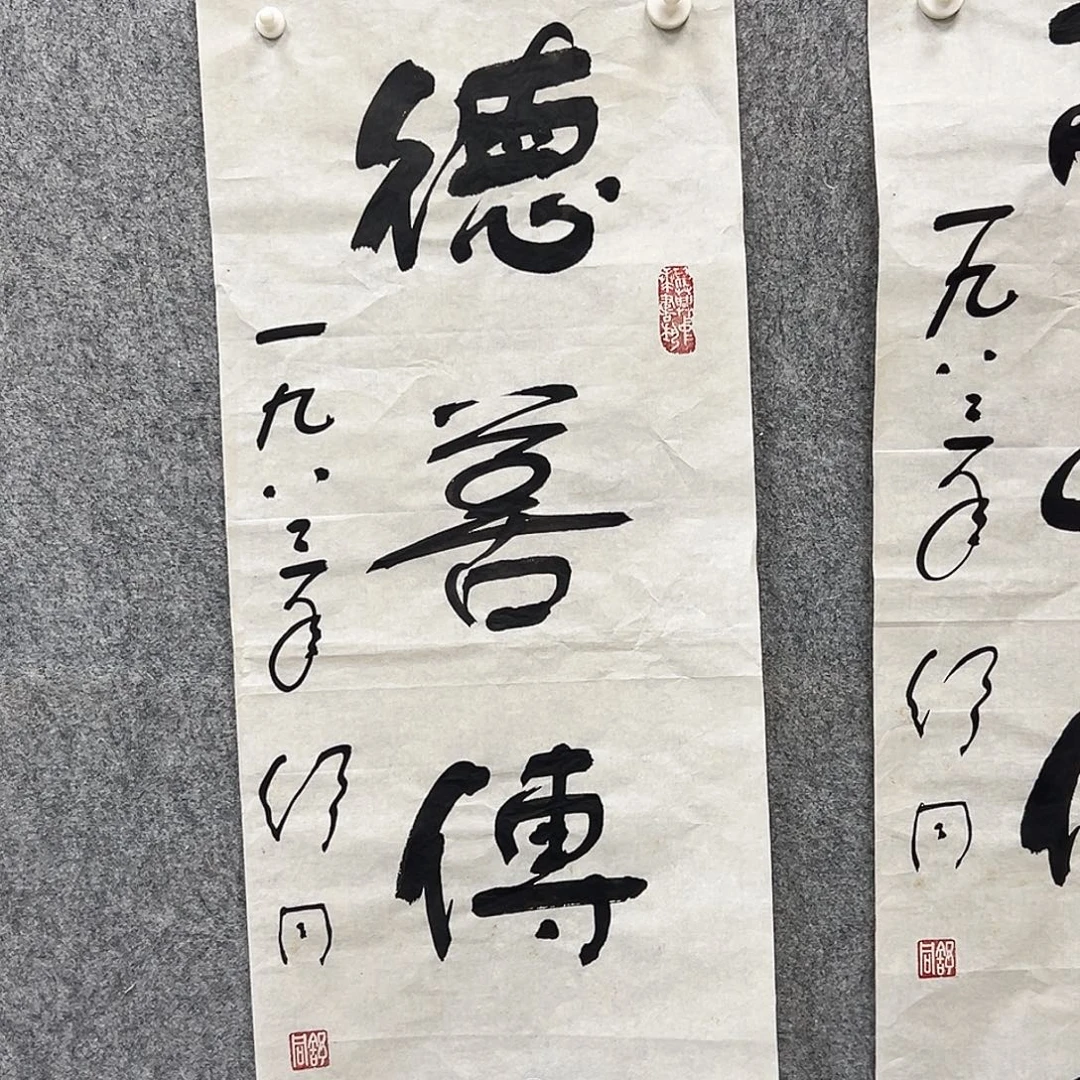 德善傳
一九八三年 舒同
舒同
一九八三年 舒同
舒同